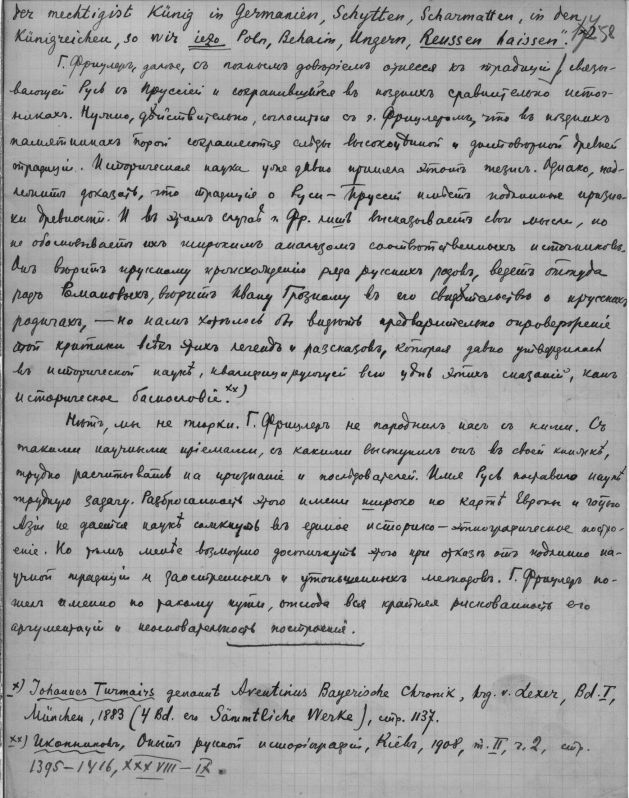 der mechtigist Künig in Germanien, Schytten, Scharmatten, in den
258
Künigreichen, so wir iezo Poln, Behaim, Ungern, Reussen haissen".
Г. Фрицлеръ, далѣе, съ полнымъ довѣріемъ отнесся къ традиціи, связы-
вающей Русь съ Пруссіей и сохранившейся въ позднихъ сравнительно источ-
никахъ. Нужно, дѣйствительно, согласиться съ г. Фрицлеромъ, что въ позднихъ
памятникахъ порой сохраняются слѣды высокоцѣнной и достовѣрной древней
традиціи. Историческая наука уже давно приняла этотъ тезисъ. Однако, над-
лежитъ доказать, что традиція о Руси-Пруссіи имѣетъ подлинные призна-
ки древности. И въ этомъ случаѣ г. Фр. лишь высказываетъ свои мысли, но
не обосновываетъ ихъ широкимъ анализомъ соотвѣтственныхъ источниковъ.
Онъ вѣритъ прусскому происхожденію ряда русскихъ родовъ, ведетъ оттуда
родъ Романовыхъ, вѣритъ Ивану Грозному въ его свидѣтельство о прусскихъ
родичахъ, — но намъ хотѣлось бы видѣть предварительно опроверженіе
той критики всѣхъ этихъ легендъ и разсказовъ, которая давно утвердилась
въ исторической наукѣ, квалифицирующей всю цѣнь этихъ сказаній, какъ
историческое баснословіе. xx)
Нѣтъ, мы не тюрки. Г. Фрицлеръ не породнилъ насъ съ ними. Съ
такими научными пріемами, съ какими выступилъ онъ въ своей книжкѣ,
трудно расчитывать на признаніе и послѣдователей. Имя Русь поставило наукѣ
трудную задачу. Разбросанность этого имени широко по картѣ Европы и
Азіи не дается наукѣ сомкнуть въ единое историко-этнографическое постро-
еніе. Но тѣмъ менѣе возможно достигнуть этого при отказѣ отъ подлинно на-
учной традиціи и заостренныхъ и утонченныхъ методовъ. Г. Фрицлеръ по-
шелъ именно по такому пути, отсюда вся крайняя рискованность его
аргументаціи и неосновательность построенія.
x) Johannes Turmairs genannt Aventinus Bayerische Chronik, hrg. v. Lexer, Bd. I,
München, 1883 (4 Bd. его Sämmtliche Werke), стр. 1137.
xx) Иконниковъ, Опытъ русской исторіографіи, Кіевъ, 1908, т. II, ч. 2, стр.
1395-1416, XXXVIII-IX.